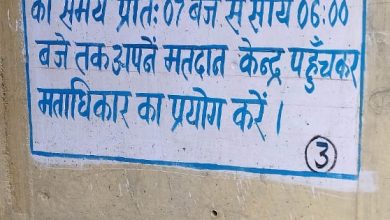 का समय प्रातः 07 बजे से सायं 06:00
बजे तक अपनें मतदान केन्द्र पहुँचकर
मताधिकार का प्रयोग करें ।
3